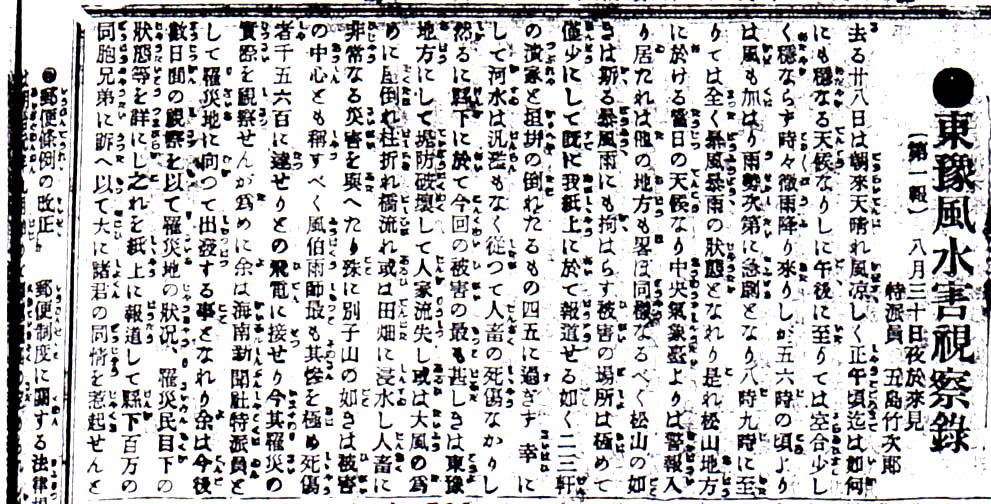 ●東豫風水害視察錄
(第一報) 八月三十日夜於來見
特派員 五島竹次郎
去る廿八日は朝來天晴れ風凉しく正午頃迄は如何
にも穩なる天候なりしに午後に至りては空合少し
く穩ならず時々微雨降り來りしが五六時の頃より
は風も加はり雨勢次第に急劇となり八時九時に至
りては全く暴風暴雨の狀態となれり是れ松山地方
に於ける當日の天候なり中央氣象臺よりは警報入
り居たれは他の地方も畧ほ同樣なるべく松山の如
きは斯る暴風雨にも拘はらす被害の場所は極めて
僅少にして既に我紙上に於て報道せる如く二三軒
の潰家と垣塀の倒れたるもの四五に過ぎす 幸に
して河水は汎濫もなく從つて人畜の死傷なかりし
然るに縣下に於て今回の被害の最も甚しきは東豫
地方にして堤防破壞して人家流失し或は大風の爲
めに屋倒れ柱折れ橋流れ或は田畑に浸水し人畜に
非常なる災害を與へたり殊に別子山の如きは被害
の中心とも稱すべく風伯雨師最も其慘を極め死傷
者千五六百に達せりとの飛電に接せり今其罹災の
實際を視察せんが爲めに余は海南新聞社特派員と
して罹災地に向つて出發する事となれり余は今後
數日間の觀察を以て罹災地の狀況、罹災民目下の
狀態等を詳にし之れを紙上に報道して縣下百万の
同胞兄弟に訴へ以て大に諸君の同情を惹起せんと
●郵便條例の改正 郵便制度に關する法律